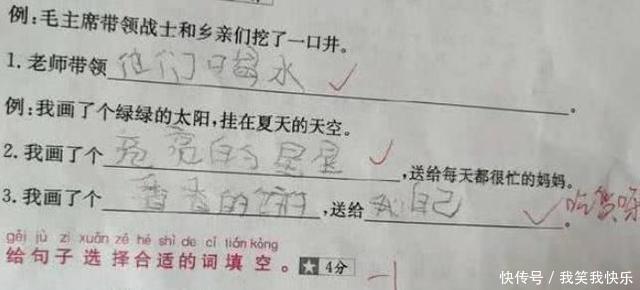 例:毛主席带领战士和乡亲们挖了一口井。
1. 老师带领他们口喝水。
例:我画了个绿绿的太阳,挂在夏天的天空。
2. 我画了个亮亮的星星,送给每天都很忙的妈妈。
3. 我画了个香香的饼,送给我自己。 吃货呀
gěi jù zi xuǎn zé hé shì de cí tián kòng
给句子选择合适的词填空。★ 4分 -1
快传号 / 我笑我快乐